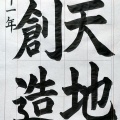 天地
創造
十一年